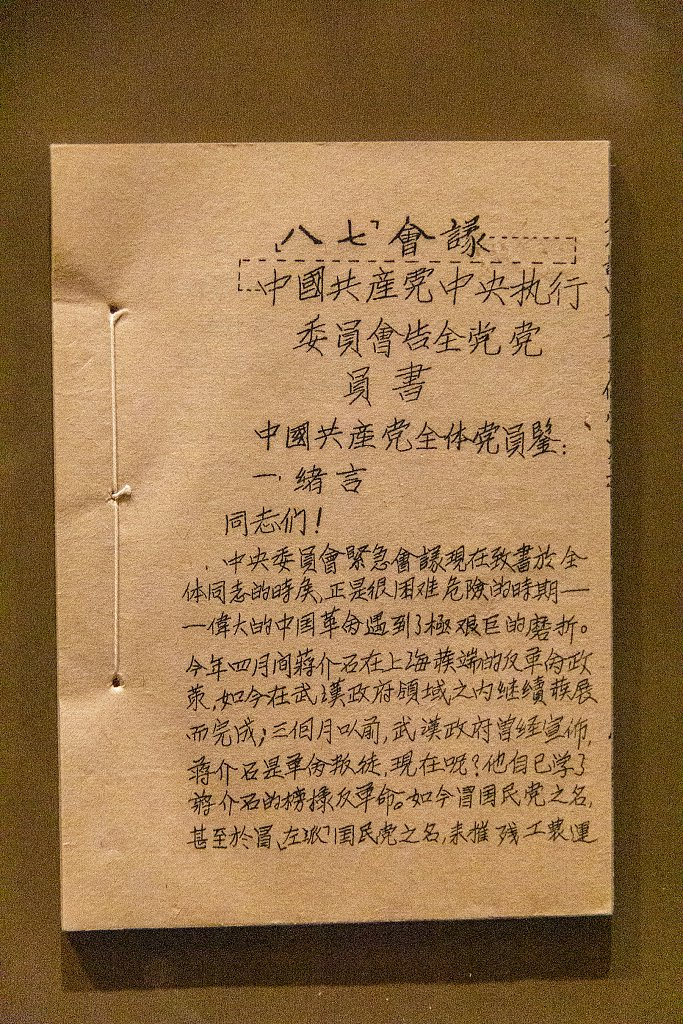 「八七」會議
中國共產党中央执行
委員會告全党党
員書
中國共產党全体党員鑒：
一．緒言
同志们！
中央委員會緊急會議現在致書於全
体同志的時矦，正是很困难危險的時期——
一偉大的中国革命遇到了極艰巨的磨折。
今年四月间蔣介石在上海發端的反革命政
策，如今在武漢政府領域之内继續發展
而完成；三個月以前，武漢政府曾经宣佈，
蔣介石是革命叛徒，現在呢？他自己学了
蔣介石的榜樣反革命。如今冒国民党之名，
甚至於冒「左派」国民党之名，来摧残工農運